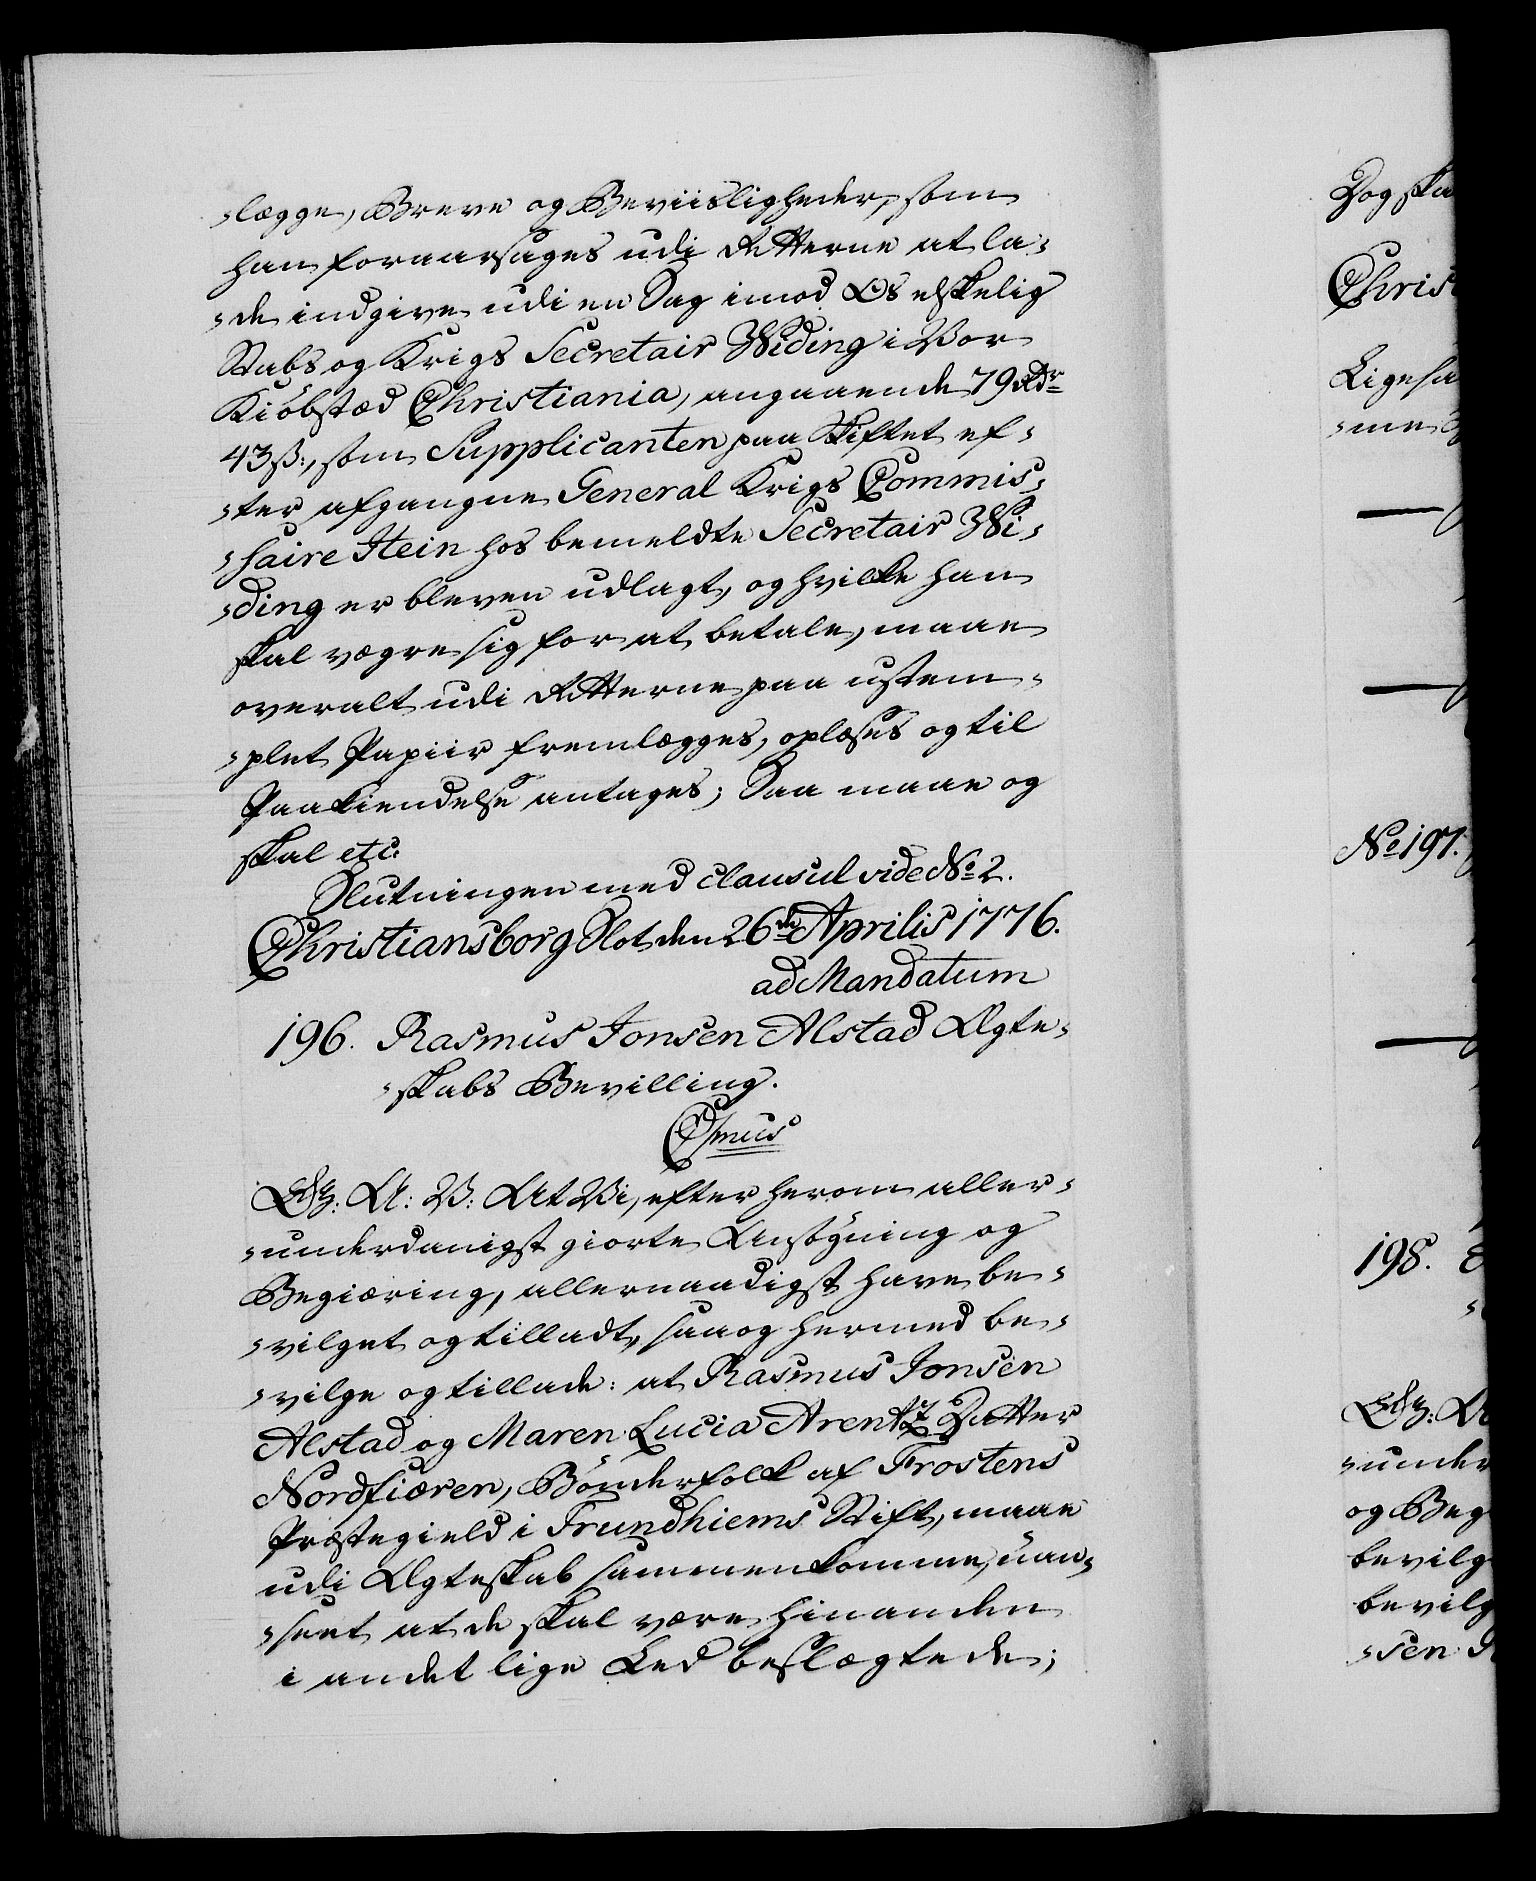 -lægge, Breve og Beviisligheder, som
han foraarsages udi Retterne at la-
-de indgive udi en Sag imod Os elskelig
Stabs og Krigs Secretair Widing i Vor
Kiöbstæd Christiania, angaaende 79 Rdr
43 ß:, som Supplicanten paa Skiftet ef-
-ter afgangne General Krigs Commis-
-saire Stein hos bemeldte Secretair Wi-
-ding er bleven udlagt, og hvilke han
skal vægre sig for at betale, maae
overalt udi Retterne paa ustem-
-plet Papiir fremlægges, oplæses og til
Paakiendelse antages; Saa maae og
skal etc:
Slutningen med clausul vide No 2.
Christiansborg Slot den 26de Aprilis 1776.
ad Mandatum
196. Rasmus Jonsen Alstad Ægte-
-skabs Bevilling.
C7mus
G: A: V: At Vi, efter herom aller-
-underdanigst giorte Ansögning og
Begiæring, allernaadigst have be-
-vilget og tilladt, saa og hermed be-
-vilge og tillade: at Rasmus Jonsen
Alstad og Maren Lucia Arentz Datter
Nordfiæren, Bönderfolk af Frostens
Præstegield i Trundhiems Stift, maae
udi Ægteskab sammenkomme, uan-
-seet at de skal være hinanden
i andet lige Led beslægtede;
Dog ska
Chris
Ligesa
-me
No 197.
198.
-under
og Beg
bevilg
bevilg
-sen